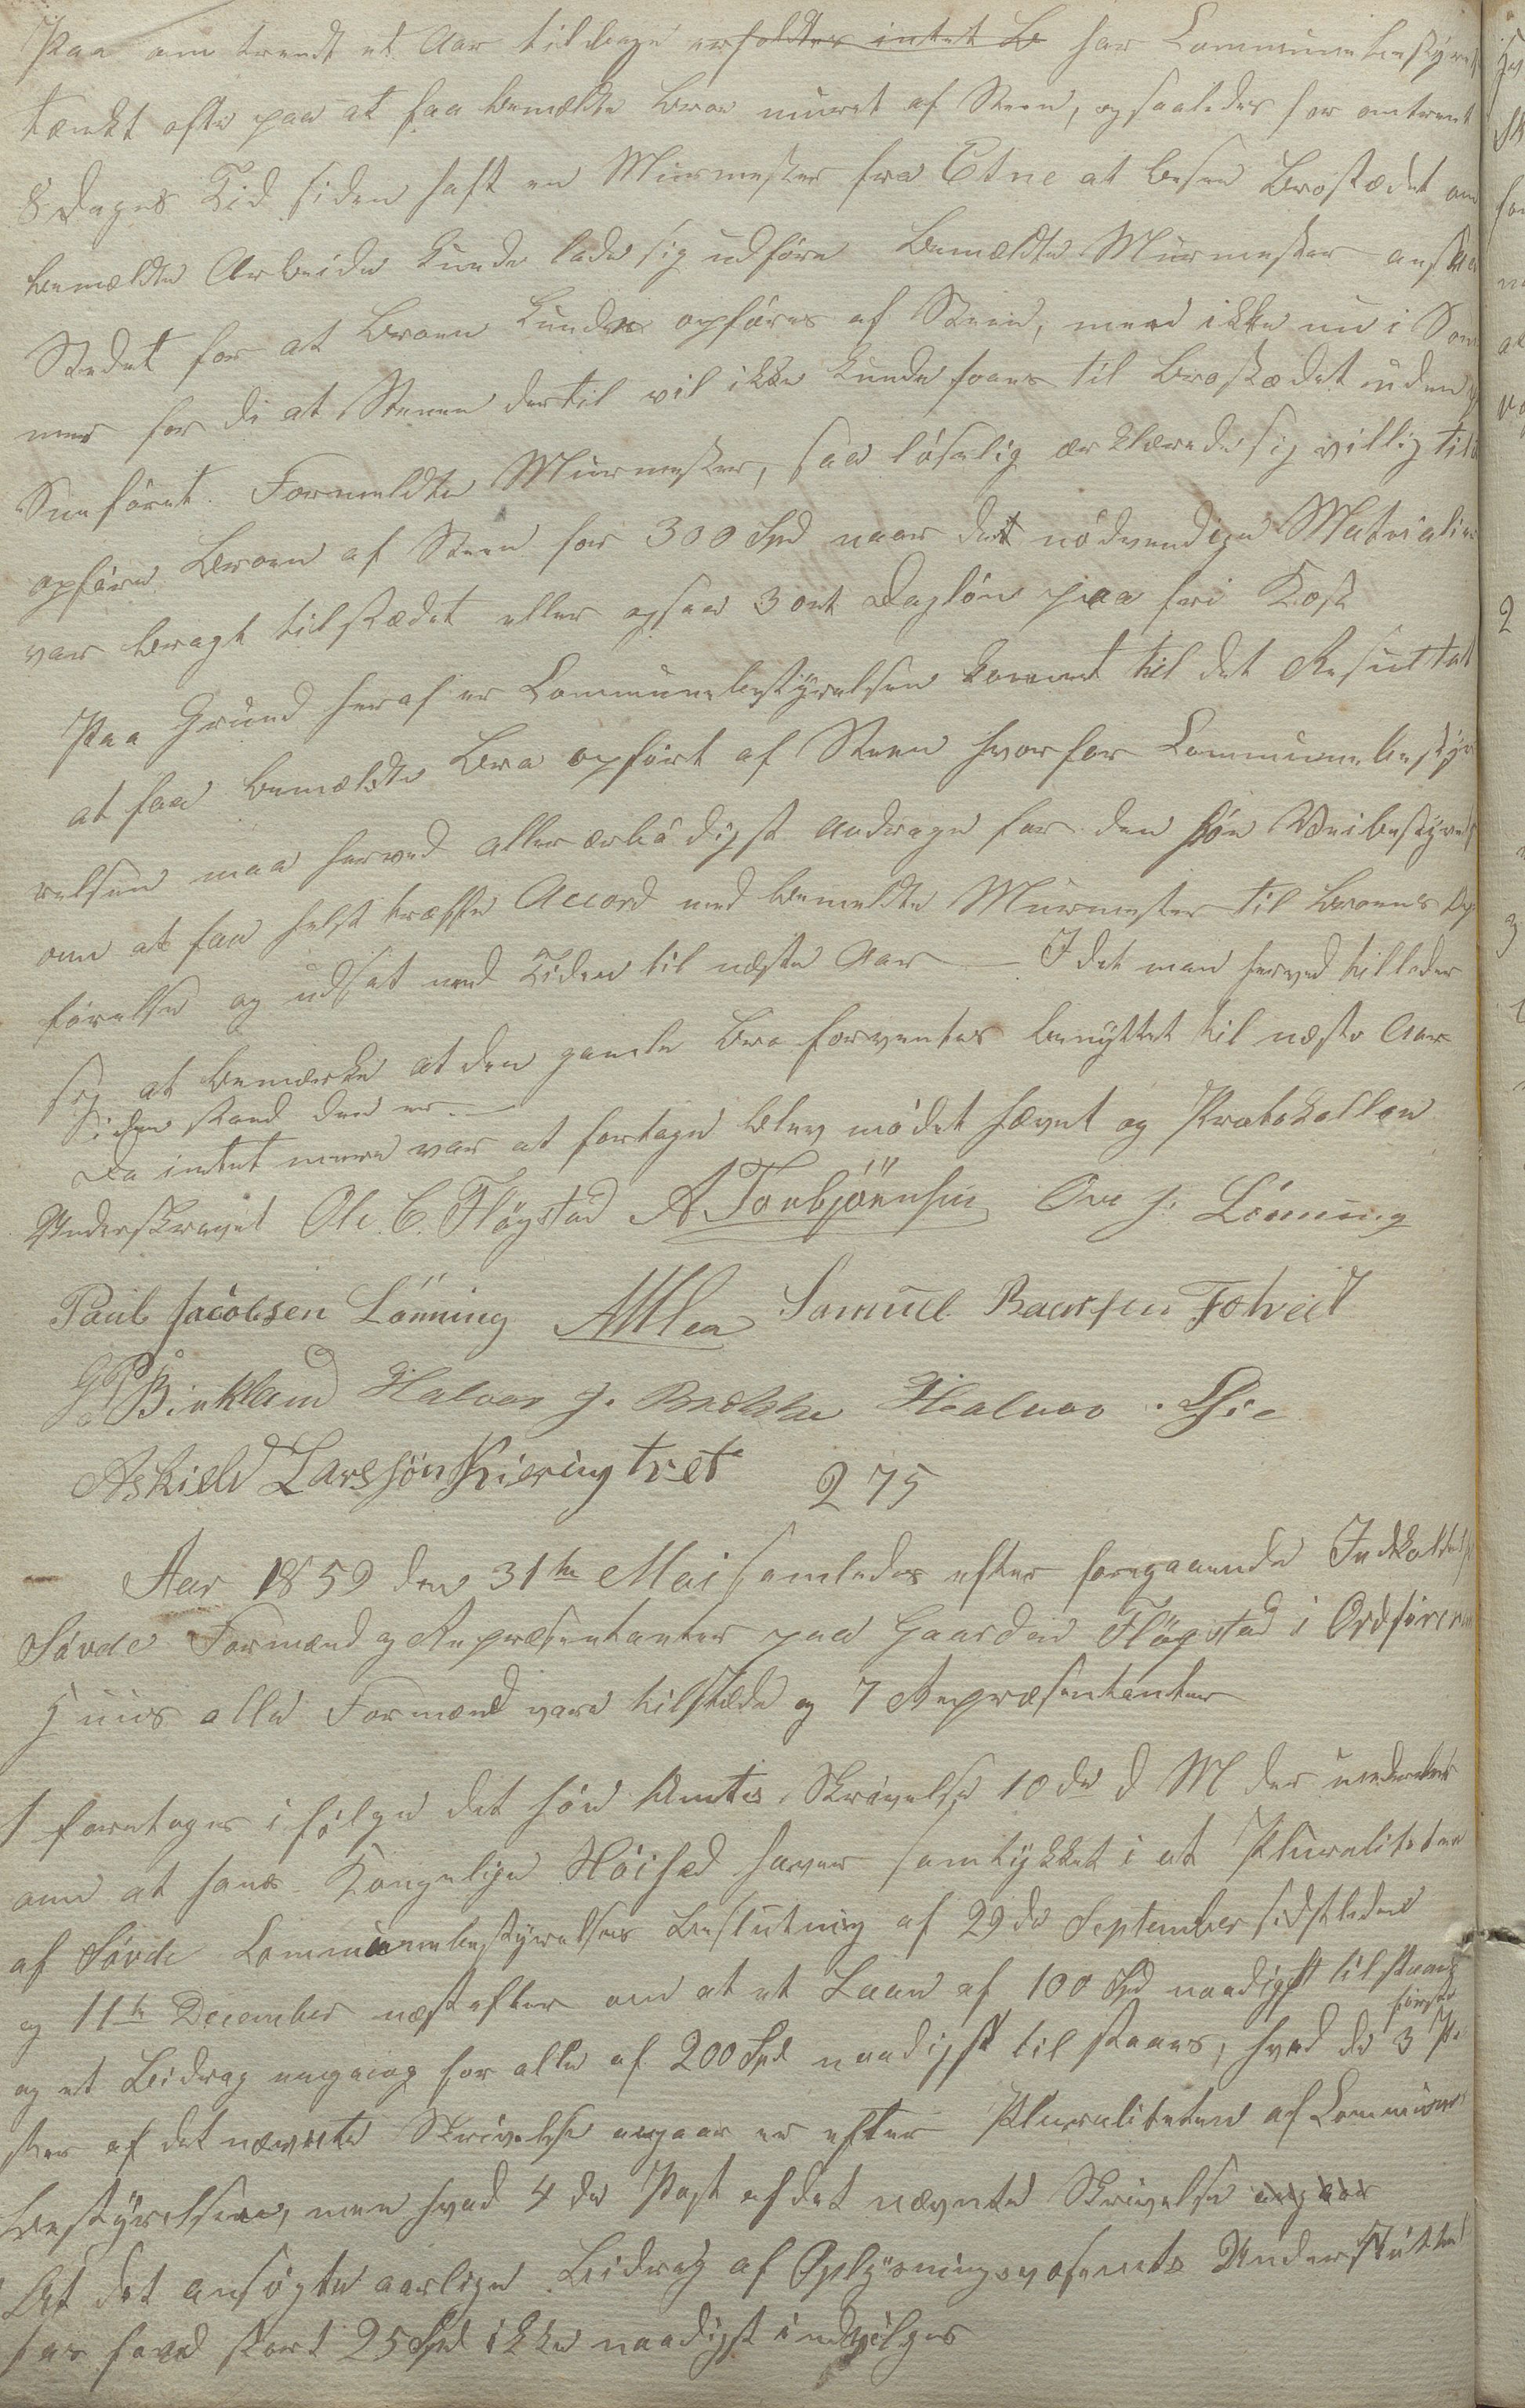 Paa om trendt et Aar tilbage erholdtes intet B har Communebestyrels
tænkt ofte paa at faa bemældte Broe muret af Steen, og saaledes for omtrent
8 Dages Tid siden haft en Muurmester fra Etne at besee Brostædet om
bemældte Arbeide kunde lade sig udføre Bemældte Muurmester ansaa
Stedet for at Broen kunde opføres af Steen, men ikke nu i Som
mer for di at Stenen dertil vil ikke kunde faaes til Brostædet uden p
Sneføret. Formeldte Muurmester, saa løselig erklærede sig villig til a
opføre Broen af Steen for 300 Spd naar det nødvendige Materialie
var bragt tilstædet eller ogsaa 3 ort Dagløn paa fri Kost
Paa Grund heraf er Communebestyrelsen kommet til det Resultat
at faa bemældte Bro opført af Steen hvorfor Communebesty
relsen maa herved allerærbødigst andrage for den høie Veibestyrels
om at faa helst træffe Accord med bemeldte Muurmester til Broens Op
førelse og udsat med Tiden til næste Aar — I det man herved tillader
sig at bemærke at den gamle Bro forventes benyttet til næste Aar
i den stand den er. —
Da intet mere var at fortage blev mødet hævet og Protokollen
Underskrevet Ole C. Fløgstad A Torbjörnsen Ove J. Lönning
Paul Jacobsen Lönning AMlea Samuel Baarsen Fotveit
G P Birkland Halvor J. Halvor . Lie
Askield Larssøn Kieringtvet 275
Aar 1859 den 31te Mai samledes efter foregaaende Indkaldels
Søvde Formænd og Repræsentanter paa Gaarden Fløgstad i Ordførerens
Huus alle Formænd vare tilstæde og 7 Repræsentanter
1 foretages i følge det høie Amtes Skrivelse 10de d M der underretter
om at hans Kongelige Høihed haver samtykket i at Pluraliteten
af Søvde Communebestyrelses Beslutning af 29de September sidstleden
og 11te December næstefter om at et Laan af 100 Spd naadigst tilstaaes
og et Bidrag engang for alle af 200 Spd naadigst til staaes, hvad de første 3 Po
ster af det nævnte Skrivelse angaar er efter Pluraliteten af Commune
Bestyrelsen, men hvad 4de Post af det nævnte Skrivelse angaar
At det ansøgte aarlige Bidrag af Oplysningsvæsenets Understøttel
ses fond stort 25 Spd ikke naadigst indvilges